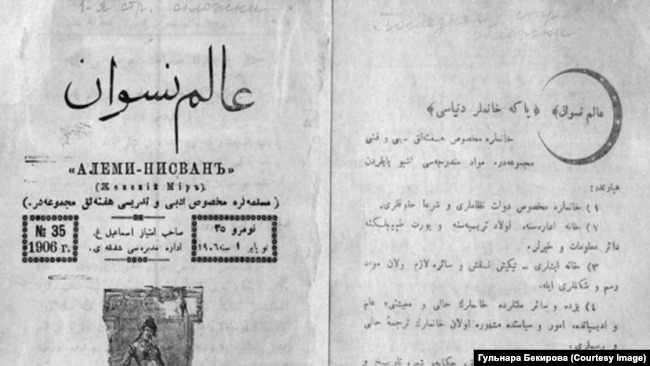 1-я стр. обложки
عالم نسوان
«АЛЕМИ-НИСВАНЪ»
(Женскій Міръ).
( مسلمه‌لره مخصوص ادبی و تدریسی هفته‌لق مجموعه‌در. )
№ 35
1906 г.
صاحب امتیاز اسماعیل غ.
اداره مدیره‌سی شفقه ی.
نومرو ٣٥
نویابر ١ سنه ١٩٠٦
Последняя стр. обложки
عالم نسوان﴾ ﴿یا که خانملر دنیاسی﴾
خانملره مخصوص هفته‌لق ادبی و فنی
مجموعه‌در. مواد مندرجه‌سی اشبو بابلردن
عبارتدر:
١) خانملره مخصوص دولت نظاملری و شرعاً حقوقلری.
٢) خانه اداره‌سنه، اولاد تربیه‌سنه و یورت طبیبلگنه
دائر معلومات و خبرلر.
٣) خانه ایشلری ـ تیکیش نقش و سائره لازم اولان مواد
رسم و شکللری ایله.
٤) بزده و سائر ملتلرده خانملرك حالی و معیشتی، علم
و ادبیاتده، امور و سیاستده مشهوره اولان خانملرك ترجمهٔ حالی
و رسملری.
حکایه، شعر، تاریخ و
Гульнара Бекирова (Courtesy Image)